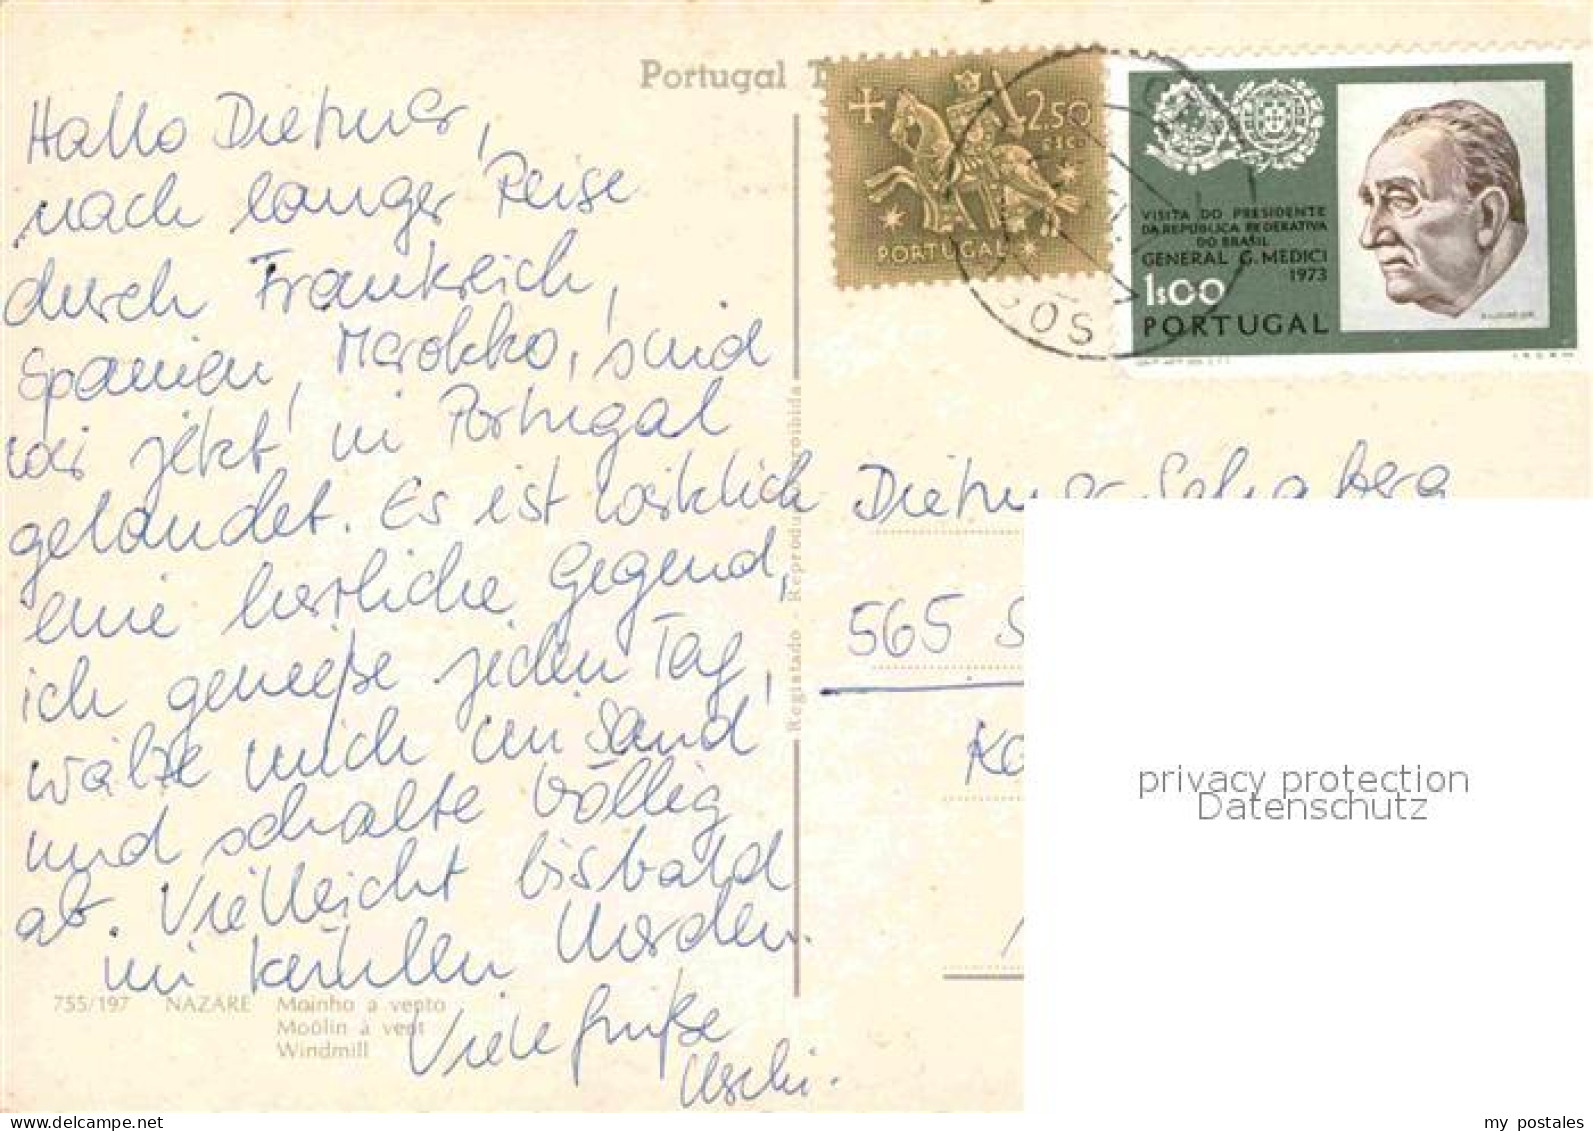 Portugal T
Hallo Dietmar,
nach langer Reise
durch Frankreich,
Spanien, Marokko, sind
wir jetzt in Portugal
gelandet. Es ist wirklich
eine herrliche Gegend,
ich genieße jeden Tag,
wälze mich im Sand
und schalte völlig
ab. Vielleicht bisbald
im kühlen Norden.
Viele Grüße
Uschi.
755/197 NAZARE Moinho a vento
Moûlin à vent
Windmill
Registado - Reprodu roibida
2.50
ESC.
PORTUGAL
VISITA DO PRESIDENTE
DA REPUBLICA FEDERATIVA
DO BRASIL
GENERAL G. MEDICI
1973
1$00
PORTUGAL
Dietmar
565 S
Ko
privacy protection
Datenschutz
delcampe.net
my_postales